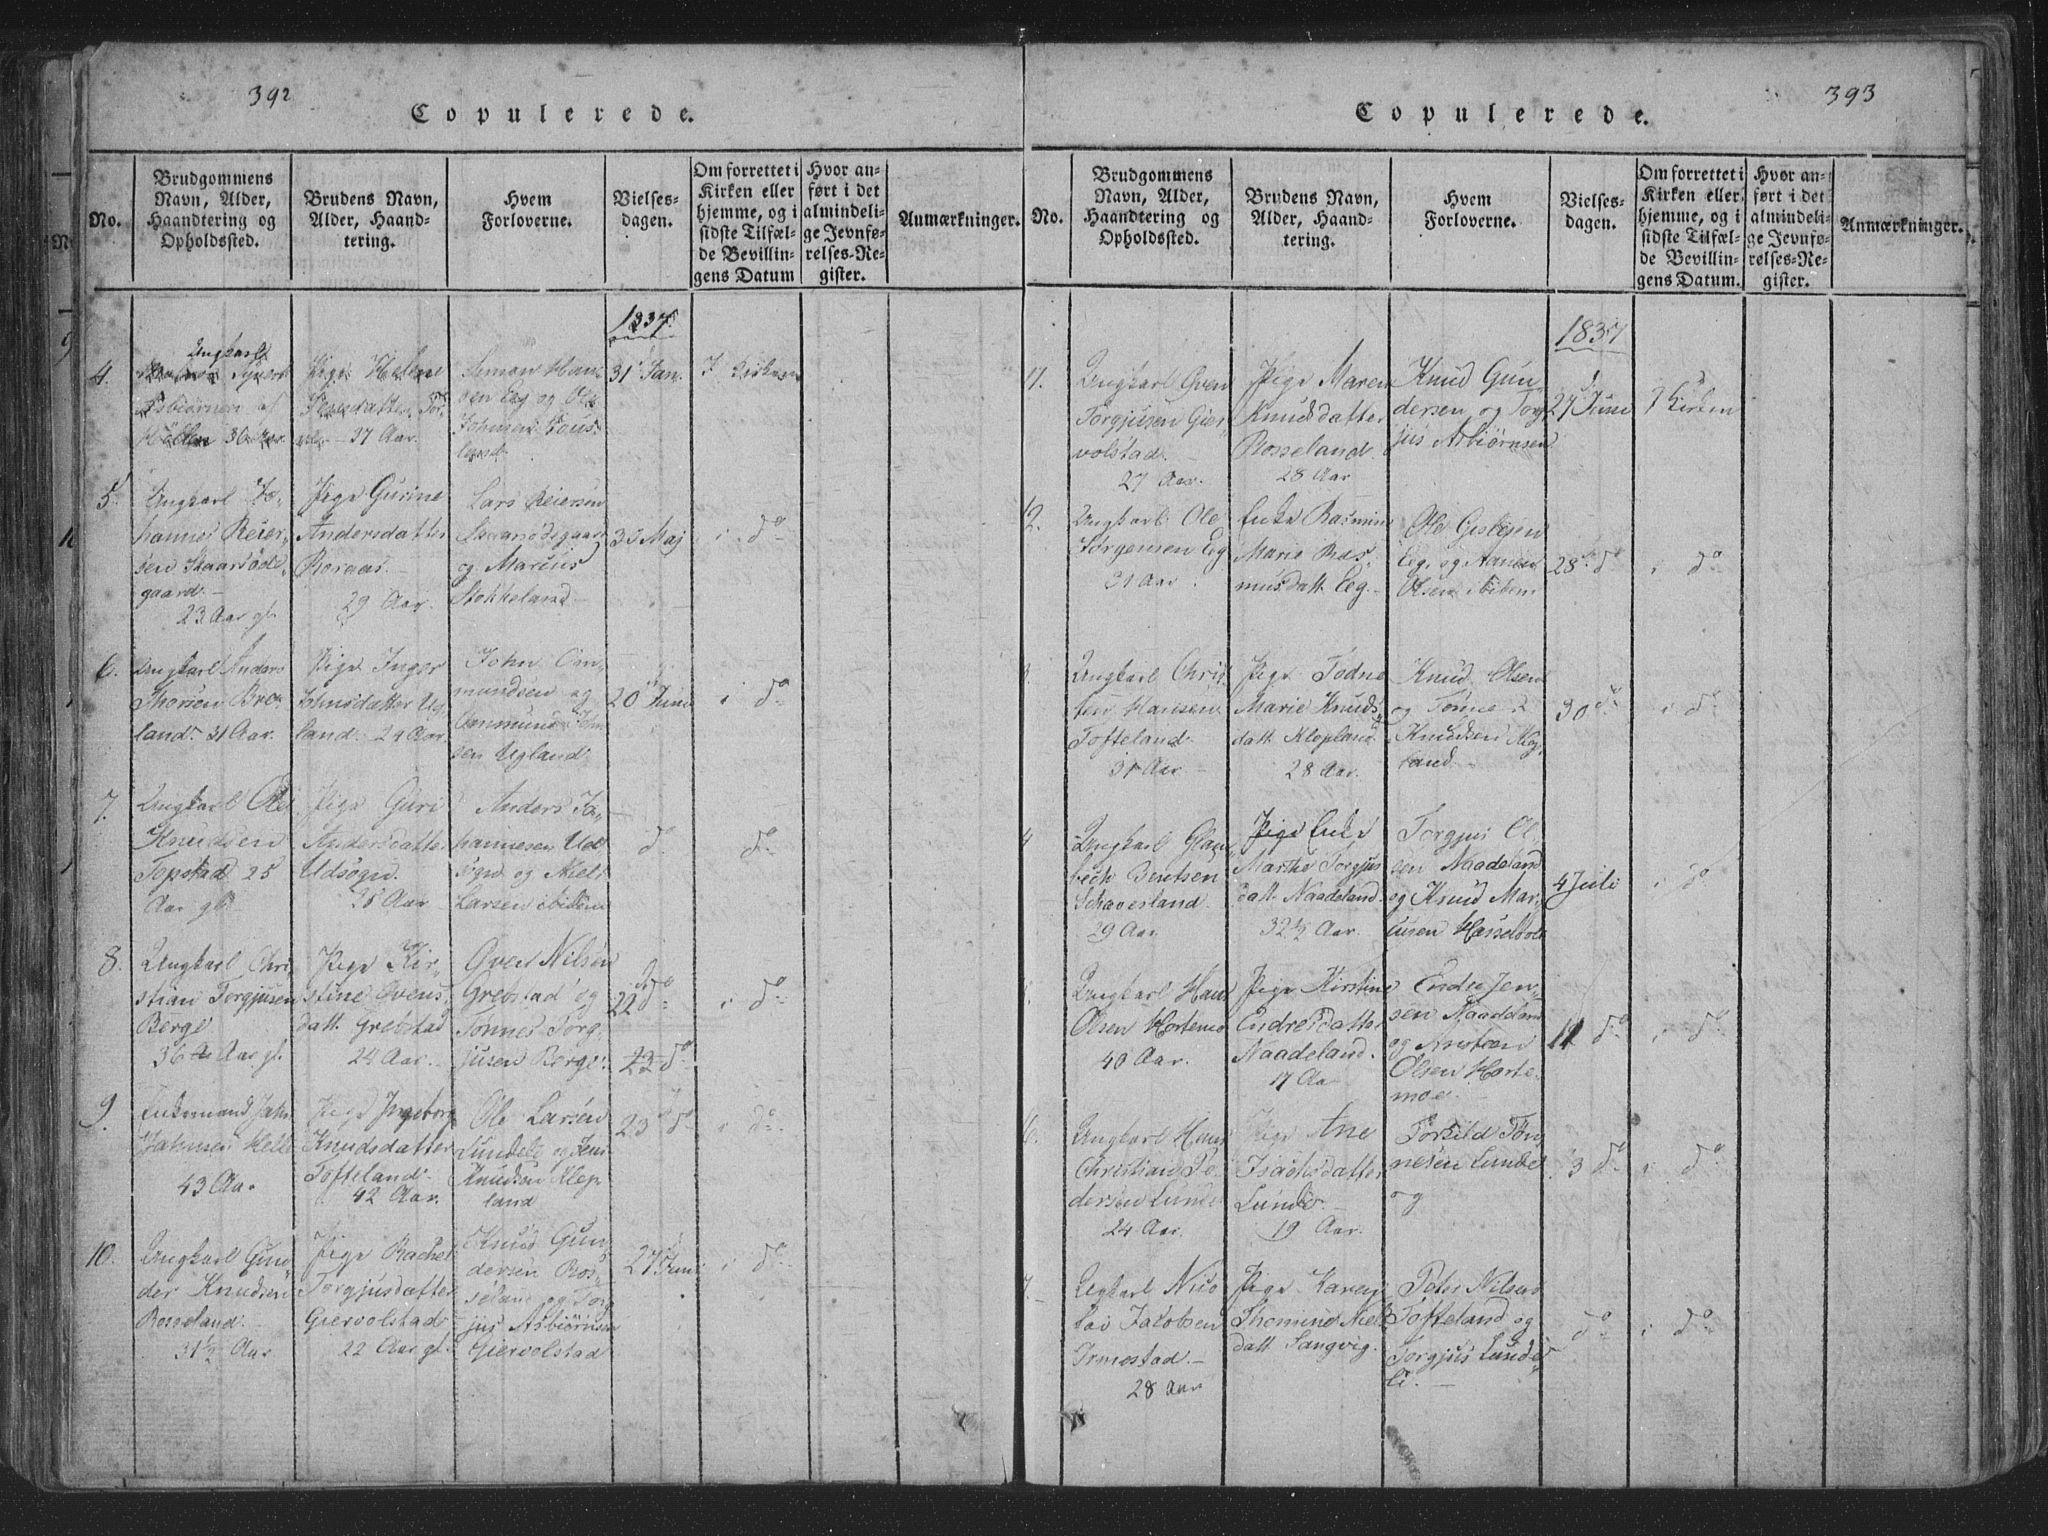 392
Copulerede.
No.
Brudgommens
Navn, Alder,
Haandtering og
Opholdssted.
Brudens Navn,
Alder, Haand-
tering.
Hvem
Forloverne.
Vielses-
dagen.
Om forrettet i
Kirken eller
hjemme, og i
sidste Tilfæl-
de Bevillin-
gens Datum
Hvor an-
ført i det
almindeli-
ge Jevnfø-
relses-Re-
gister.
Anmærkninger.
1837
4.
Ungkarl
Sivert
Asbiørnsen af
30 Aar.
Pige Helene
37 Aar.
Simon Han
sen Eeg og Ole
Johnsen Fous
land
31 Jan.
I Kirken
5.
Ungkarl Jo-
hannes Reier-
sen Skaarsöde-
gaard.
23 Aar gl.
Pige Gurine
Andersdatter
Roraas.
29 Aar.
Lars Reiersen
og Marcus
Stokkeland
Maj
i do
6.
Ungkarl Anders
Thorsen Bre-
land. 31 Aar.
Pige Inger
Johnsdatter Ug-
land. 24 Aar.
John On-
mundsen og
Onmund John
sen Ugland
20 Juni
i do
7.
Ungkarl Ole
Knudsen
Topstad 25
Aar gl.
Pige Guri
Andersdatter
Udsögn.
Aar
Anders Jo-
hannesen Ud
sögn og Niels
Larsen ibidem
do
do
8.
Ungkarl Chri-
stian Torgjusen
Berge
36 Aar gl.
Pige Kir-
stine Ovens-
datt. Grebstad
24 Aar.
Oven Nilsen
Grebstad og
Tönnes Torg-
jusen Berge.
22 do
23 do
i do
9.
Enkemand Jahn
Jahnsen Helle
43 Aar
Pige Ingeborg
Knudsdatter
Tofteland.
42 Aar.
Ole Larsen
Lundele og Jens
Knudsen Klep-
land
23 do
i do
10.
Ungkarl Gun-
der Knudsen
Rosseland.
31½ Aar
Pige Rachel
Torgjusdatter
Giervolstad
22 Aar gl.
Knud Gun
dersen Ros-
seland og Torg
jus Asbiörnsen
Giervolstad
27 Juni
i do
393
Copulerede.
No.
Brudgommens
Navn, Alder,
Haandtering og
Opholdssted.
Brudens Navn,
Alder, Haand-
tering.
Hvem
Forloverne.
Vielses-
dagen.
Om forrettet i
Kirken eller
hjemme, og i
sidste Tilfæl-
de Bevillin-
gens Datum.
Hvor an-
ført i det
almindeli-
ge Jevnfø-
relses-Re-
gister.
Anmærkninger.
1837
11.
Ungkarl Oven
Torgjusen Gier-
volstad.
27 Aar.
Pige Maren
Knudsdatter
Rosseland.
28 Aar
Knud Gun-
dersen og Torg-
jus Asbiörnsen
27 Juni
I Kirken
12.
Ungkarl Ole
Jörgensen Eeg
31 Aar
Enke Rasmine
Marie Ras-
musdatt. Eeg.
Ole
Eeg, og Aanen
Olsen ibidem
28 do
i do
3.
Ungkarl Chris-
ten Hansen
Tofteland.
31 Aar
Pige Todne
Marie Knuds
datt. Klepland
28 Aar.
Knud Olsen
og Tönnes
Knudsen Klep-
land.
30 do
i do
4
Ungkarl Glam-
bech Bentsen
Schaverland.
29 Aar
Pige Enke
Marthe Torgjus
datt. Naadeland.
32½ Aar.
Torgjus Ol-
sen Naadeland
og Knud Mar-
cusen Hasselvolt
4 Juli
i do
Ungkarl Hans
Olsen Hortemo
40 Aar.
Pige Kirstine
Endresdatter
Naadeland.
17 Aar
Endre Jen-
sen Naadeland
og
Olsen Horte-
moe.
11 do
i do
6.
Ungkarl Hans
Christian Pe-
dersen Lunde
24 Aar.
Pige Ane
Isachsdatter
Lunde.
19 Aar.
Torkild Tön-
nesen Lunde
og
13 do
i do
7.
Ungkarl Nico
lai Jacobsen
Irmestad.
28 Aar
Pige Karen
Thomine Niels
datt Langvig.
Peter Nilsen
Tofteland og
Torgjus Lunde-
li.
do
i do